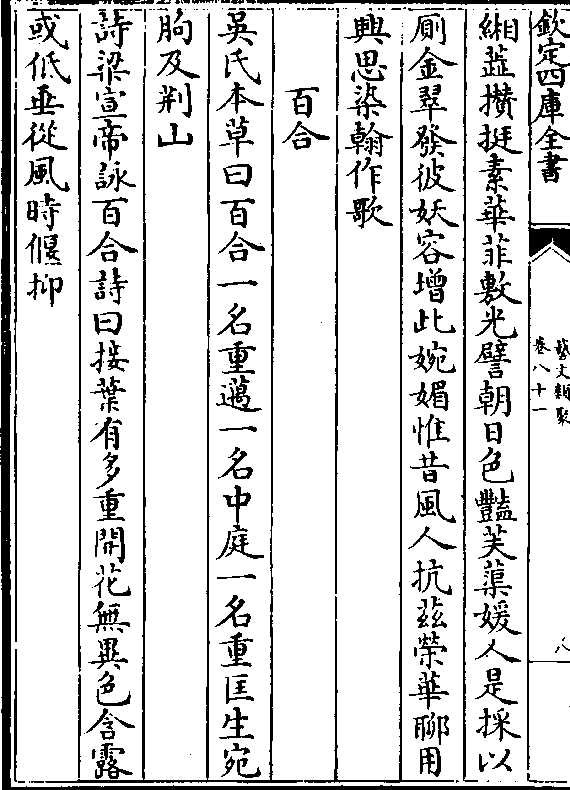 欽定四庫全書
藝文類聚
卷八十一
八
緗蘂攢挺素華菲敷光譬朝日色豔芙蕖媛人是採以
厠金翠發彼妖容增此婉媚惟昔風人抗兹榮華聊用
興思染翰作歌
百合
吳氏本草曰百合一名重邁一名中庭一名重匡生宛
朐及荆山
詩梁宣帝詠百合詩曰接葉有多重開花無異色含露
或低垂從風時偃抑